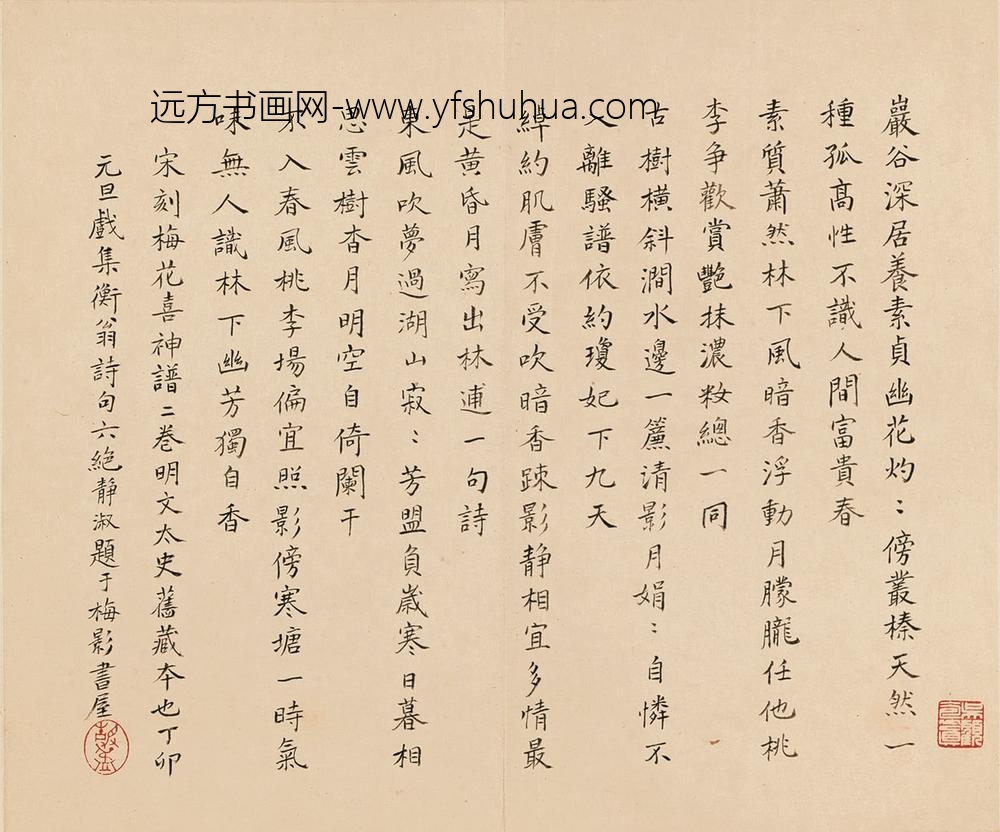 远方书画网-www.yfshuhua.com
巖谷深居養素貞幽花灼〻傍叢榛天然一
種孤高性不識人間富貴春
素質蕭然林下風暗香浮動月朦朧任他桃
李争歡賞艷抹濃粧總一同
古樹橫斜澗水邊一簾清影月娟〻自憐不
入離騷譜依約瓊妃下九天
綽約肌膚不受吹暗香踈影静相宜多情最
是黄昏月寫出林逋一句詩
東風吹夢過湖山寂〻芳盟負歲寒日暮相
思雲樹杳月明空自倚闌干
不入春風桃李場偏宜照影傍寒塘一時氣
味無人識林下幽芳獨自香
宋刻梅花喜神譜二卷明文太史舊藏夲也丁卯
元旦戲集衡翁詩句六絶静淑題于梅影書屋